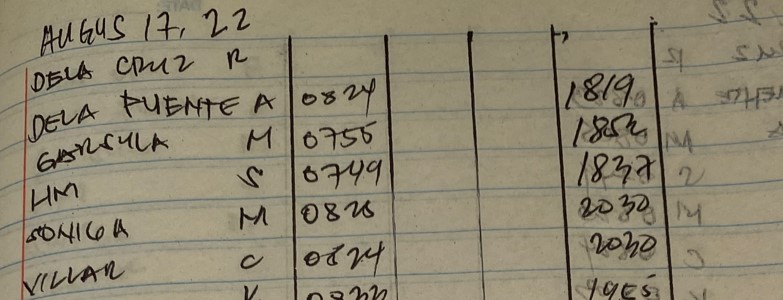 AUGUS 17, 22
DELA CRUZ R
DELA PUENTE A 0824 1819
GARSULA M 0755 1852
LIM S 0749 1837
SONIGA M 0828 2030
VILLAR C 0824 2030